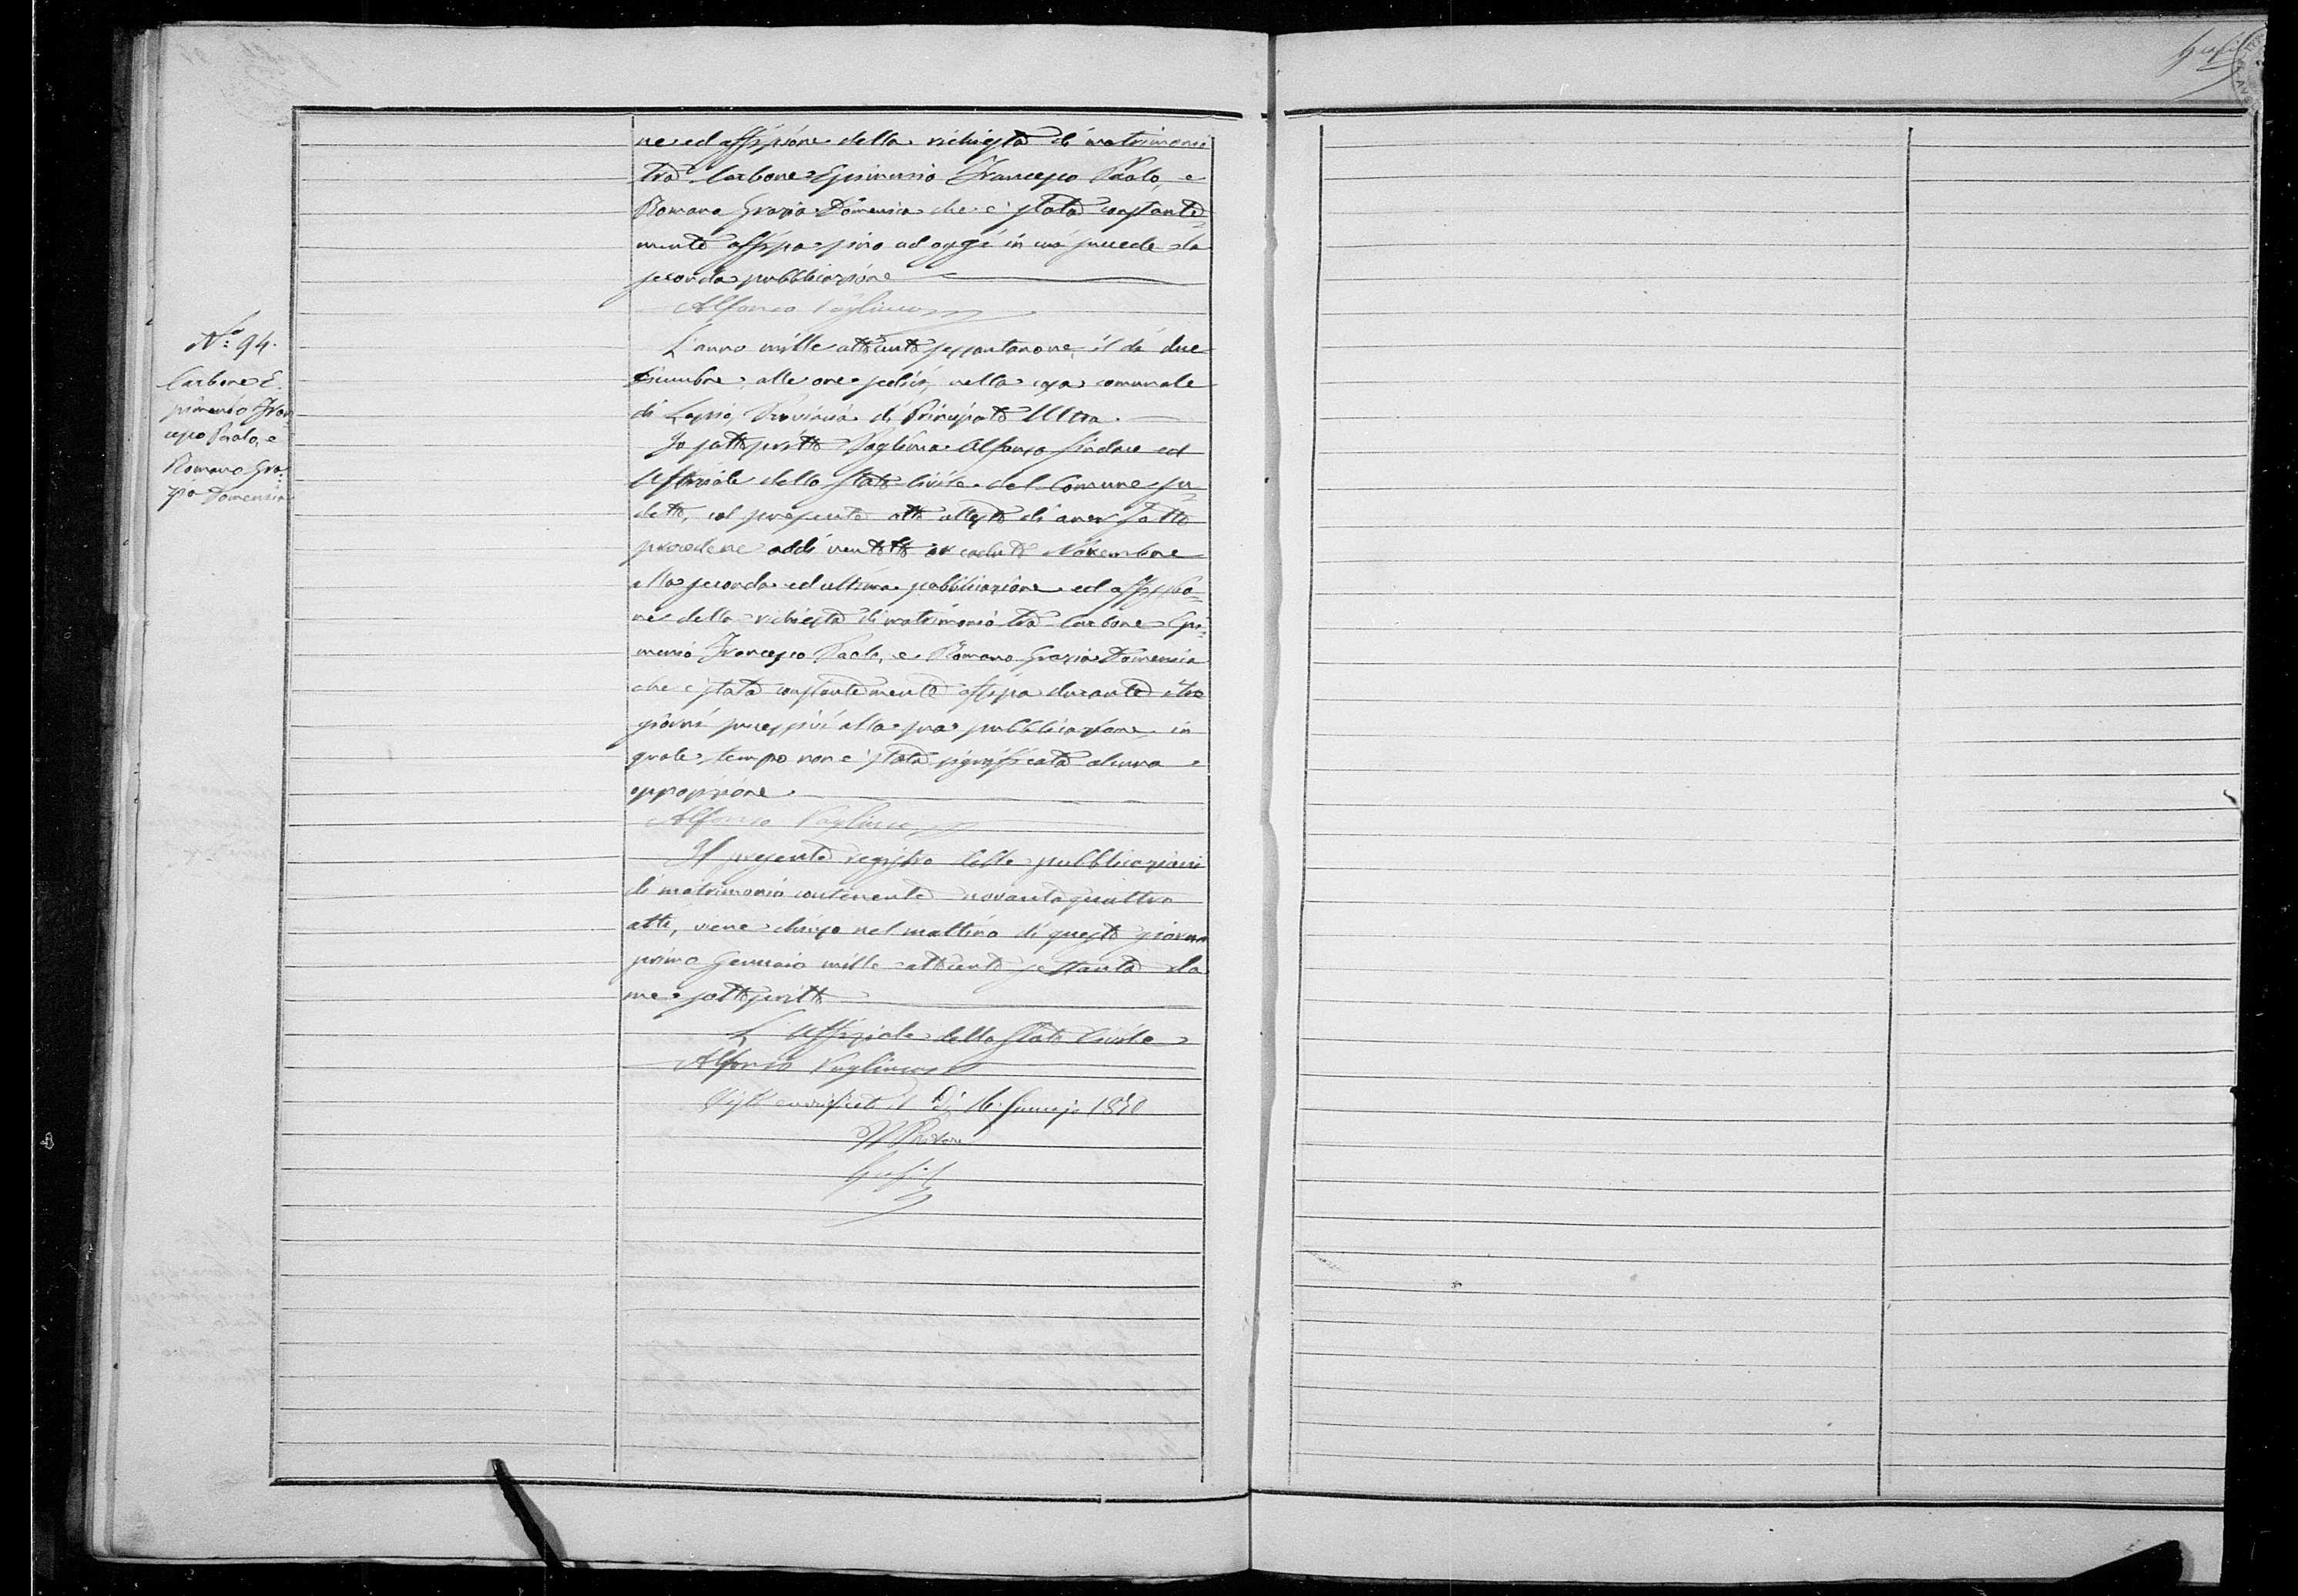 ne ed affissione della richiesta di matrimonio
tra Carbone Epimenio Francesco Paolo, e
Romano Grazia Domenica che è stata constante=
mente affissa sino ad oggi in cui succede la
seconda pubblicazione
Alfonso Pagliuca
N.o 94.
Carbone E=
pimenio Fran
cesco Paolo, e
Romano Gra=
zia Domenica
L'anno mille ottocento sessantanove, il dì due
Dicembre, alle ore sedici, nella casa comunale
di Lapio, Provincia di Principato Ultra.
Io sottoscritto Pagliuca Alfonso Sindaco ed
Uffiziale dello Stato Civile del Comune su
detto, col presente atto attesto di aver fatto
procedere addì ventotto or caduto Novembre
alla seconda ed ultima pubblicazione ed affissio=
ne della richiesta di matrimonio tra Carbone Epi=
menio Francesco Paolo, e Romano Grazia Domenica
che è stata constantemente affissa durante i tre
giorni successivi alla sua pubblicazione, in
quale tempo non è stata significata alcuna
opposizione.
Alfonso Pagliuca
Il presente registro delle pubblicazioni
di matrimonio contenente novantaquattro
atti, viene chiuso nel mattino di questo giorno
primo Gennaio mille ottocento settanta da
me sottoscritto
L'Uffiziale dello Stato Civile
Alfonso Pagliuca
Visto e verificato il dì 16 Gennajo 1870
Il Pretore